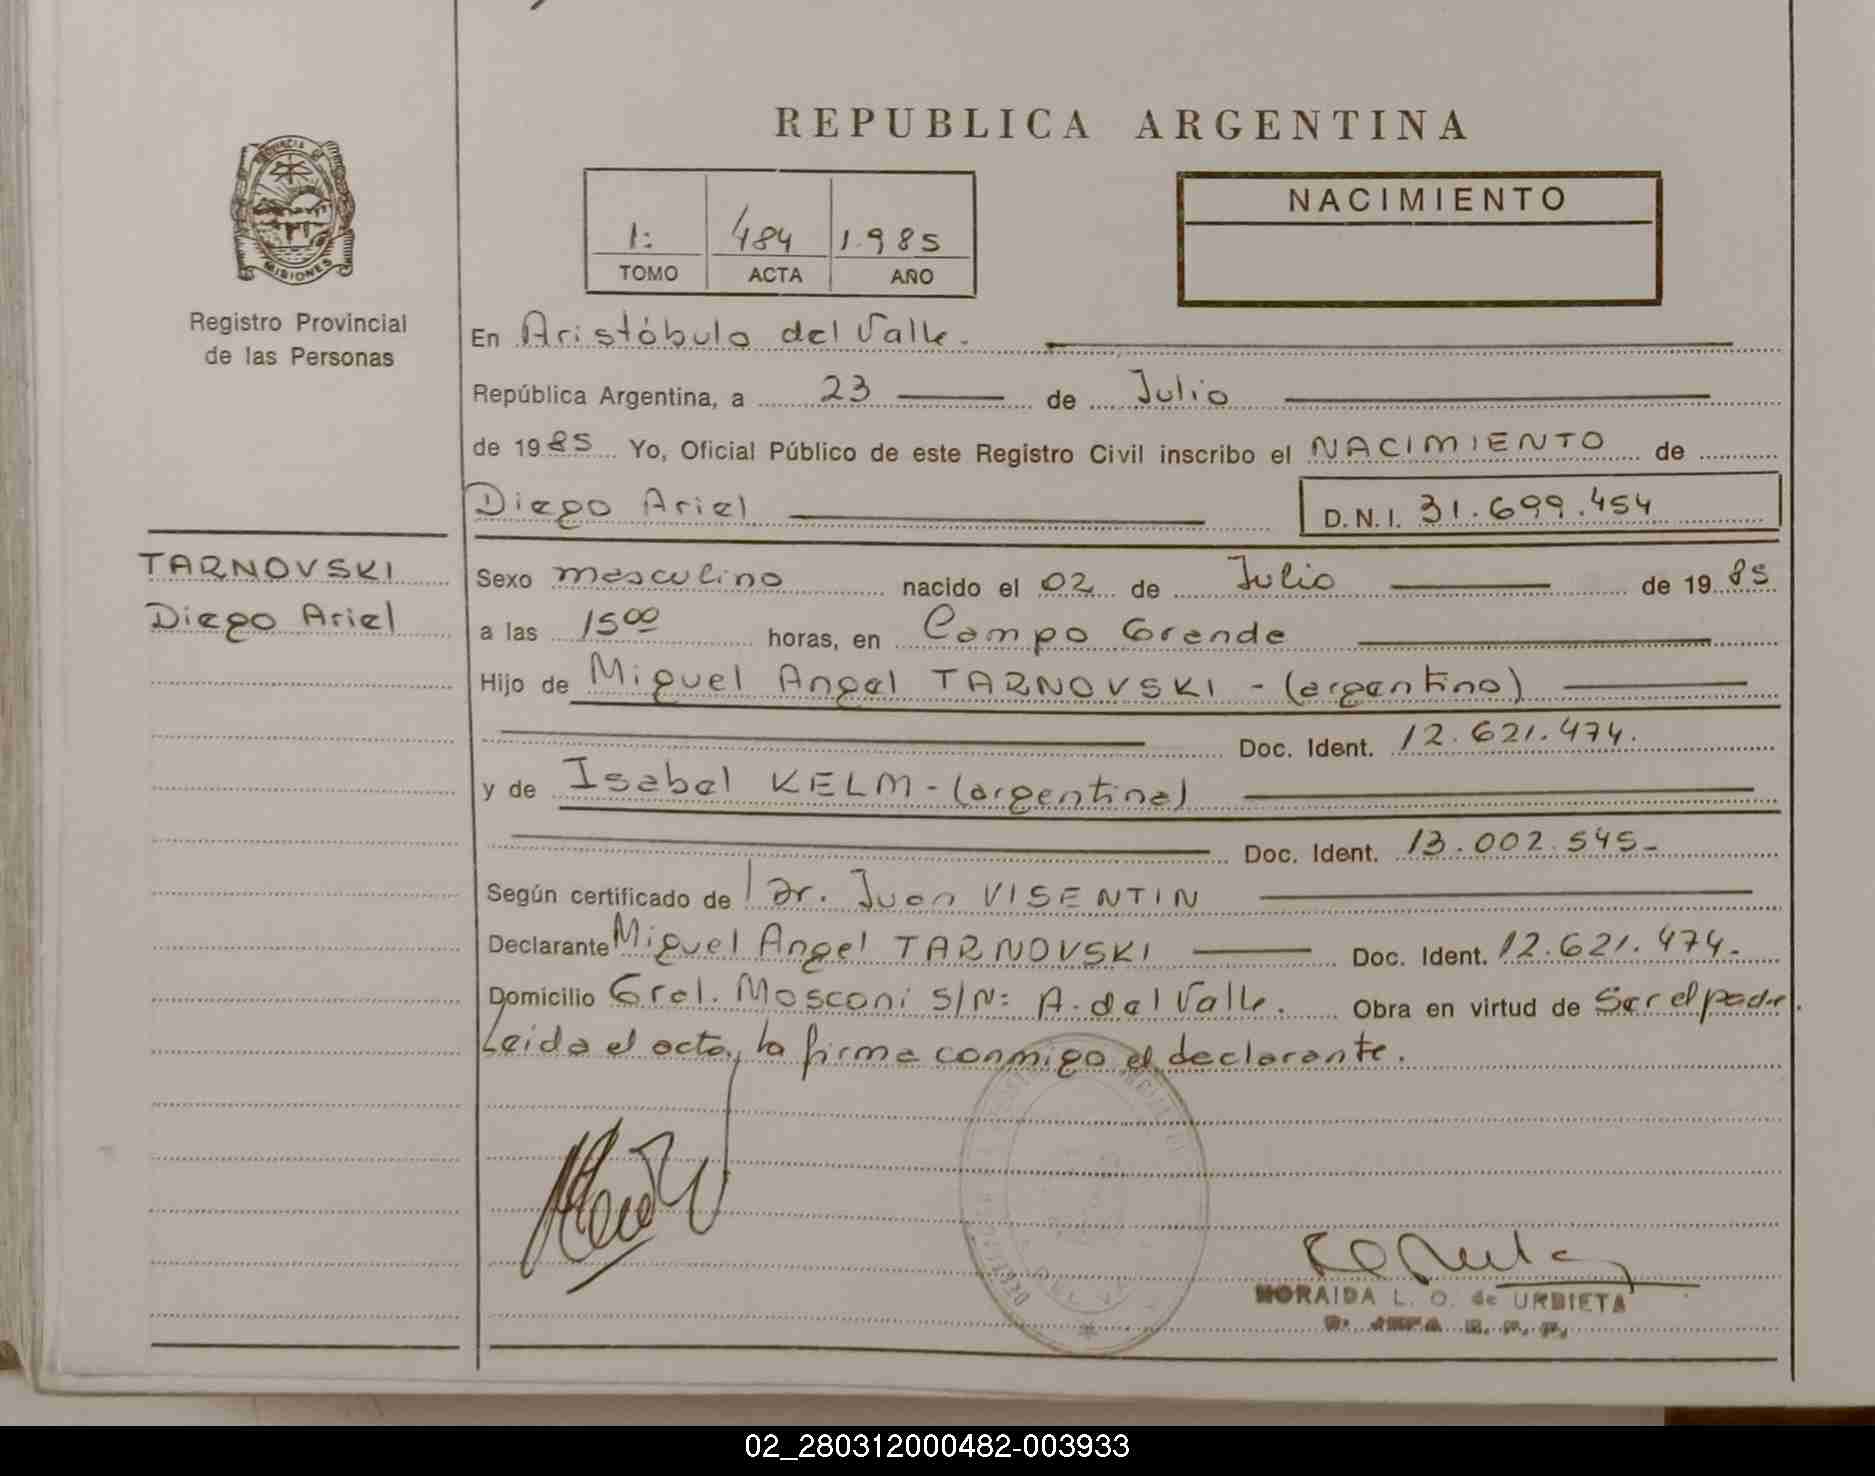 REPUBLICA ARGENTINA
PROVINCIA DE
MISIONES
Registro Provincial
de las Personas
1: 484 1.985
TOMO ACTA AÑO
NACIMIENTO
En Aristóbulo del Valle.
República Argentina, a 23 de Julio
de 1985 Yo, Oficial Público de este Registro Civil inscribo el NACIMIENTO de
Diego Ariel D.N.I. 31.699.454
TARNOVSKI
Diego Ariel
Sexo masculino nacido el 02 de Julio de 1985
a las 15 00 horas, en Campo Grande
Hijo de Miguel Angel TARNOVSKI - (argentino)
Doc. Ident. 12.621.474.
y de Isabel KELM - (argentina)
Doc. Ident. 13.002.545-
Según certificado de Dr. Juan VISENTIN
Declarante Miguel Angel TARNOVSKI Doc. Ident. 12.621.474-
Domicilio Gral. Mosconi S/N: A. del Valle. Obra en virtud de Ser el padre.
Leida el acta, la firma conmigo el declarante.
NORAIDA L. O. de URBIETA
02_280312000482-003933